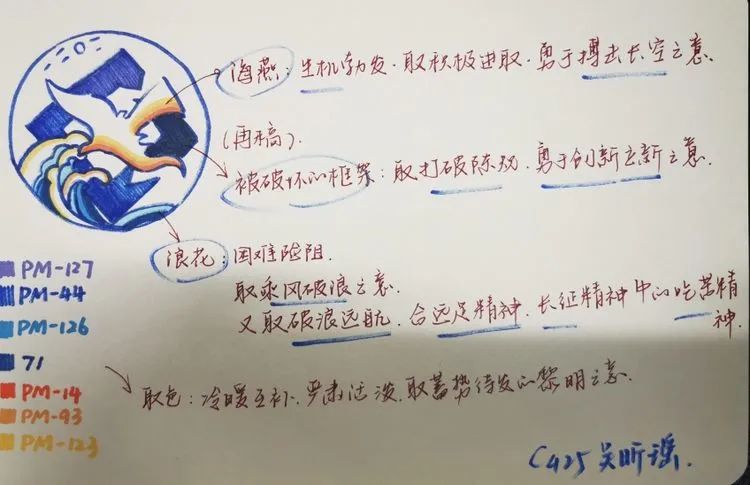 海燕：生机勃发．取积极进取．勇于搏击长空之意．
(再稿)．
被破坏的框架：取打破陈规．勇于创新立新之意．
浪花：困难险阻．
取乘风破浪之意
又取破浪远航．合远足精神．长征精神中的吃苦精神．
取色：冷暖互补．严肃活泼．取蓄势待发的黎明之意．
PM-127
PM-44
PM-126
71
PM-14
PM-93
PM-123
C425 吴昕瑶．